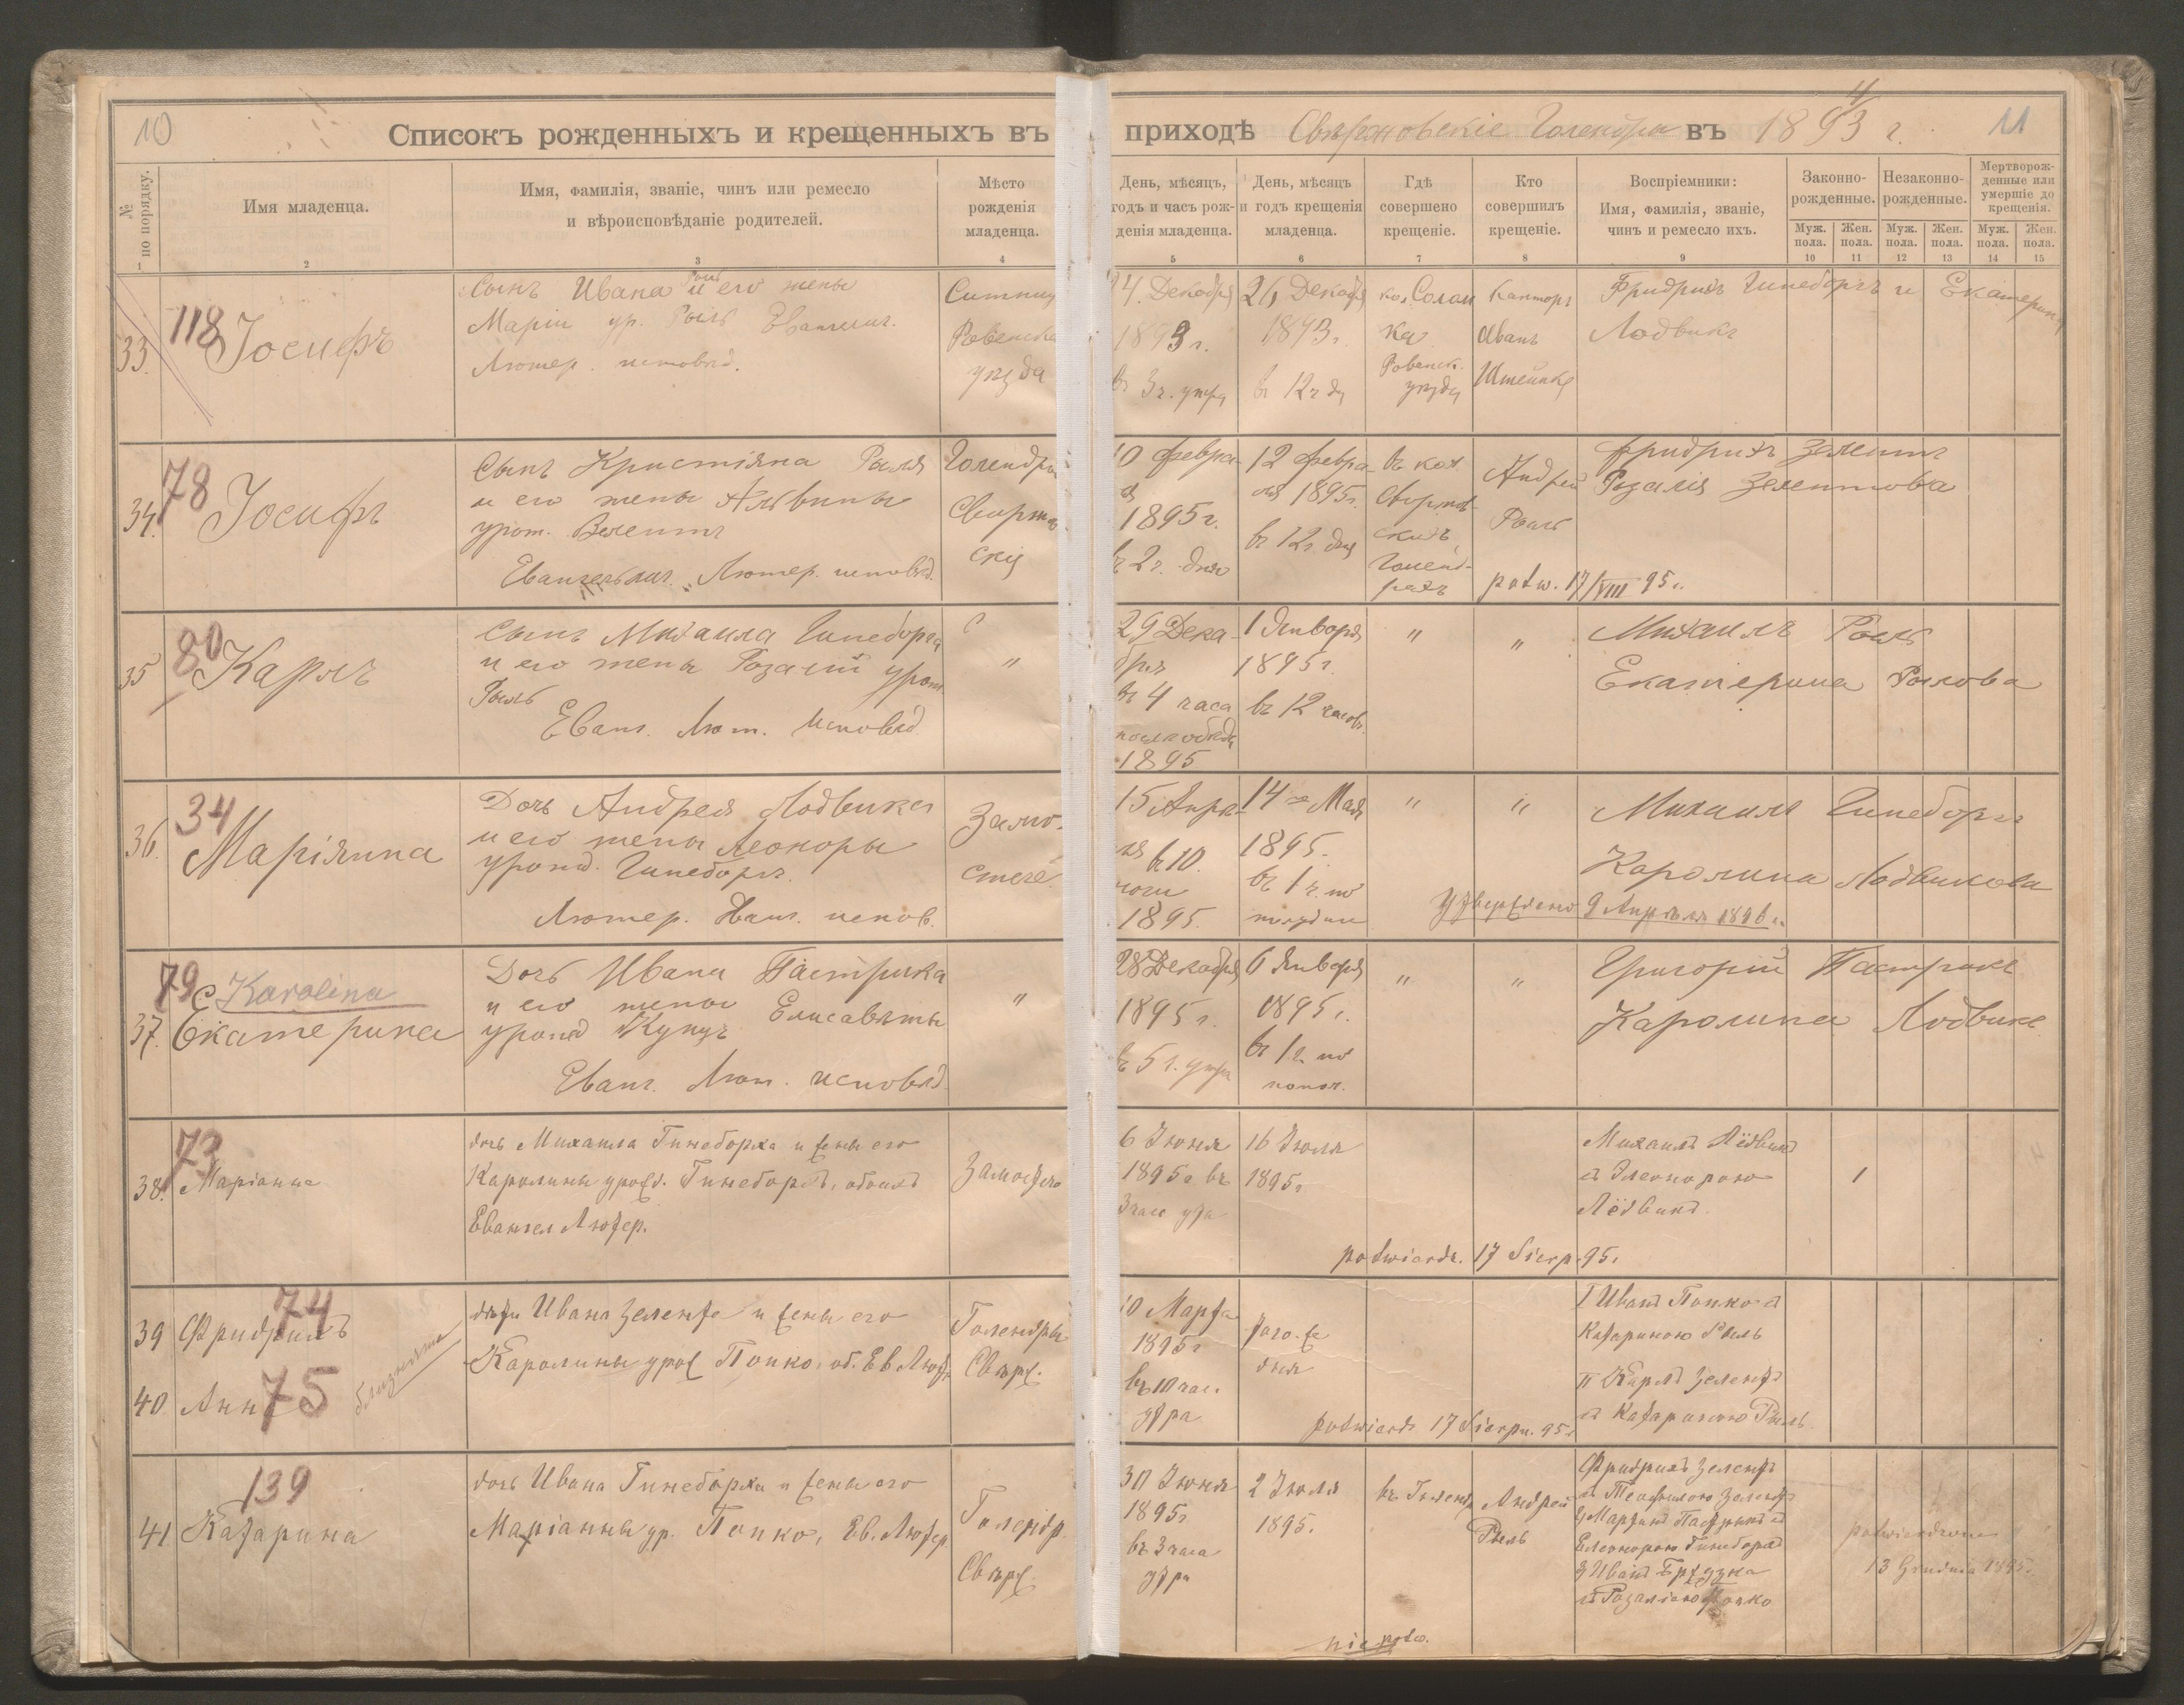 10
Списокъ рожденныхъ и крещенныхъ въ приходѣ Свѣржовскіе Голендры въ 1893 г. 11
4
№ по порядку.
Имя младенца.
Имя, фамилія, званіе, чинъ или ремесло
и вѣроисповѣданіе родителей.
Мѣсто
рожденія
младенца.
День, мѣсяцъ,
годъ и часъ рож-
денія младенца.
День, мѣсяцъ
и годъ крещенія
младенца.
Гдѣ
совершено
крещеніе.
Кто
совершилъ
крещеніе.
Воспріемники:
Имя, фамилія, званіе,
чинъ и ремесло ихъ.
Законно-
рожденные.
Незаконно-
рожденные.
Мертворож-
денные или
умершіе до
крещенія.
Муж. пола.
Жен. пола.
Муж. пола.
Жен. пола.
Муж. пола.
Жен. пола.
1 2 3 4 5 6 7 8 9 10 11 12 13 14 15
33.
118
Іосифъ
Сынъ Ивана Рыль и его жены
Маріи ур. Рыль Евангелич.
Лютер. исповѣд.
Ситниц
Ровенска
уѣзда
24. Декабря
1893 г.
въ 3 ч. утра
26 Декабря
1893 г.
въ 12 ч дн
кол. Солом
ка
Ровенск.
уѣзда
Канторъ
Иванъ
Штейнке
Фридрихъ Гинеборгъ и Екатерина
Лодвикъ
34.
78
Іосифъ
Сынъ Кристіяна Рыля
и его жены Альвины
урож. Зелентъ
Евангельлич. Лютер. исповѣд.
Голендры
Своржов
скія
10 февра-
ля
1895 г.
въ 2 ч. дня
12 февра-
ля 1895 г.
въ 12 ч. дня
въ кол.
Своржов-
скихъ
Голенд-
рахъ
Андрей
Рыль
potw. 17/VIII 95 r.
Фридрихъ Зелентъ
Розалія Зелентова
35
80
Карлъ
Сынъ Михаила Гинеборга
и его жены Розаліи урож.
Рыль
Еванг. Лют. Исповѣд.
"
29 Дека-
бря
въ 4 часа
послѣ обѣда
1895
1 Января
1895 г.
въ 12 часовъ.
"
"
Михаилъ Рыль
Екатерина Рылова
36.
34
Маріянна
Дочь Андрея Лодвика
и его жены Леоноры
урожд. Гинеборгъ.
Лютер. Еванг. испов.
Замо-
стече
15 Апрѣ-
ля въ 10.
ночи
1895.
14 го Мая
1895.
въ 1 ч. по
полудни
"
"
Михаилъ Гинеборгъ
Каролина Лодвикова
Утверждено 9 Апрѣля 1896 г.
37.
79
Karolina
Екатерина
Дочь Ивана Пастрика
и его жены Елисаветы
урожд Купцъ
Еванг. Лют. исповѣд.
"
28 Декабря
1895 г.
въ 5 ч. утра
6 Января
1895 г.
въ 1 ч. по
попол.
"
"
Григорій Пастрикъ
Каролина Лодвикъ
38.
73
Маріанна
дочь Михаила Гинеборха и жены его
Каролины урожд. Гинеборхъ, обоихъ
Евангел Лютер.
Замостече
6 Іюня
1895 г въ
3 часа утра
16 Іюля
1895 г
Михаилъ Лёдвикъ
съ Элеонорою
Лёдвикъ.
1
potwierdz. 17 Sierp. 95.
39
74
Фридрихъ
40.
75
Анна
близнята
дѣти Ивана Зеленте и жены его
Каролины урож Попко, об. Ев Лютер
Голендры
Свѣрж.
10 Марта
1895 г
въ 10 час.
утра
того-же
дня
I Иванъ Попко съ
Катариною Рыль
II Карлъ Зелентъ
съ Катариною Рыль
potwierdz 17 Sierpn. 95 r
41
139
Катарина
дочь Ивана Гинеборха и жены его
Маріанны ур. Попко, Ев. Лютер.
Голендр.
Свѣрж.
30 Іюня
1895 г
въ 3 часа
утра
2 Іюля
1895.
въ Голенд
Андрей
Рыль
Фридрихъ Зелентъ
съ Теофилою Зелентъ
2, Мартинъ Пастрикъ съ
Елеонорою Гинеборхъ
3 Иванъ
съ Розаліею Попко
potwierdzone
13 Grudnia 1895.
nie potw.